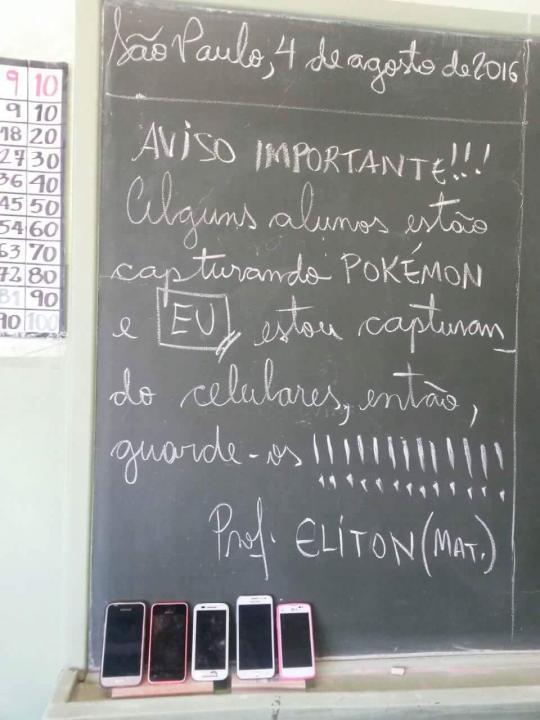 São Paulo, 4 de agosto de 2016
AVISO IMPORTANTE!!!
Alguns alunos estão
capturando POKÉMON
e EU estou capturan_
do celulares, então,
guarde-os !!!!!!!!!!!!!
Prof. ELITON (MAT.)
9 10
9 10
18 20
27 30
36 40
45 50
54 60
63 70
72 80
81 90
90 100